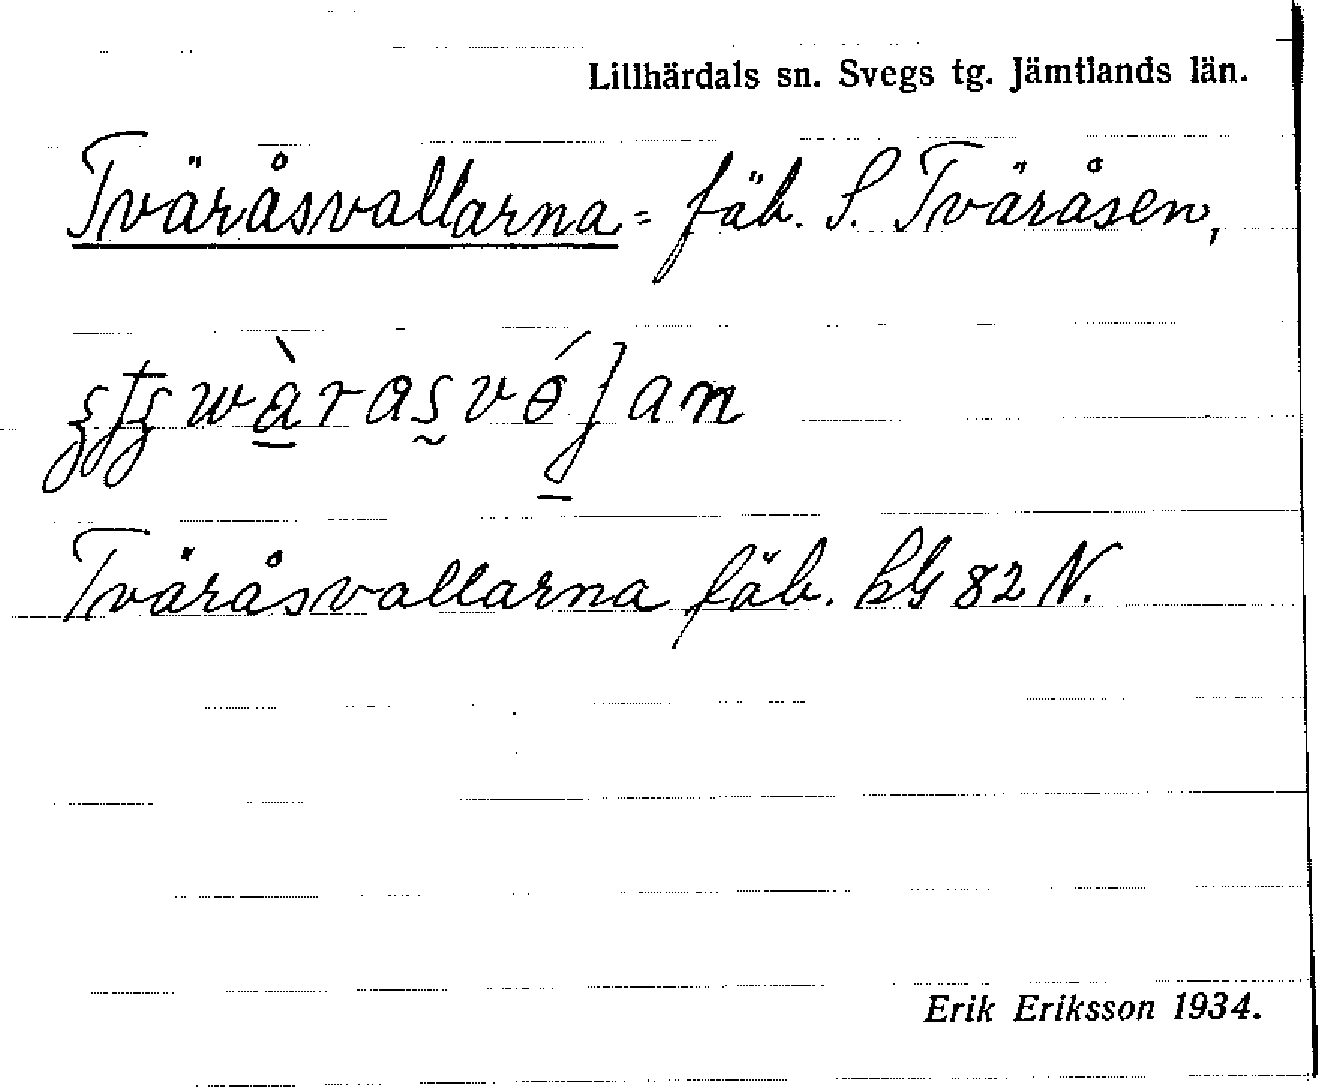 Lillhärdals sn. Svegs tg. Jämtlands län.
Tväråsvallarna = fäb. S. Tväråsen,
Tväråsvallarna fäb. kbl 82 N.
Erik Eriksson 1934.